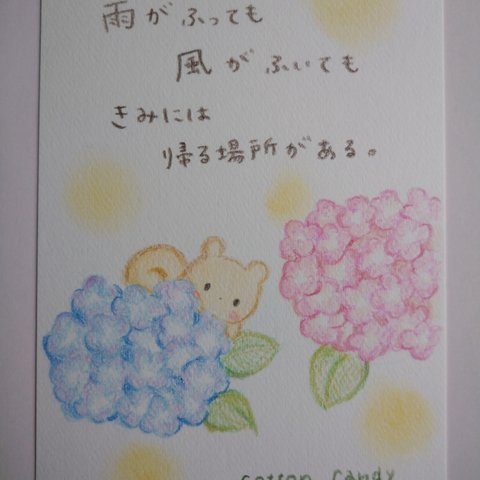 雨がふっても
風がふいても
きみには
帰る場所がある。
cotton candy